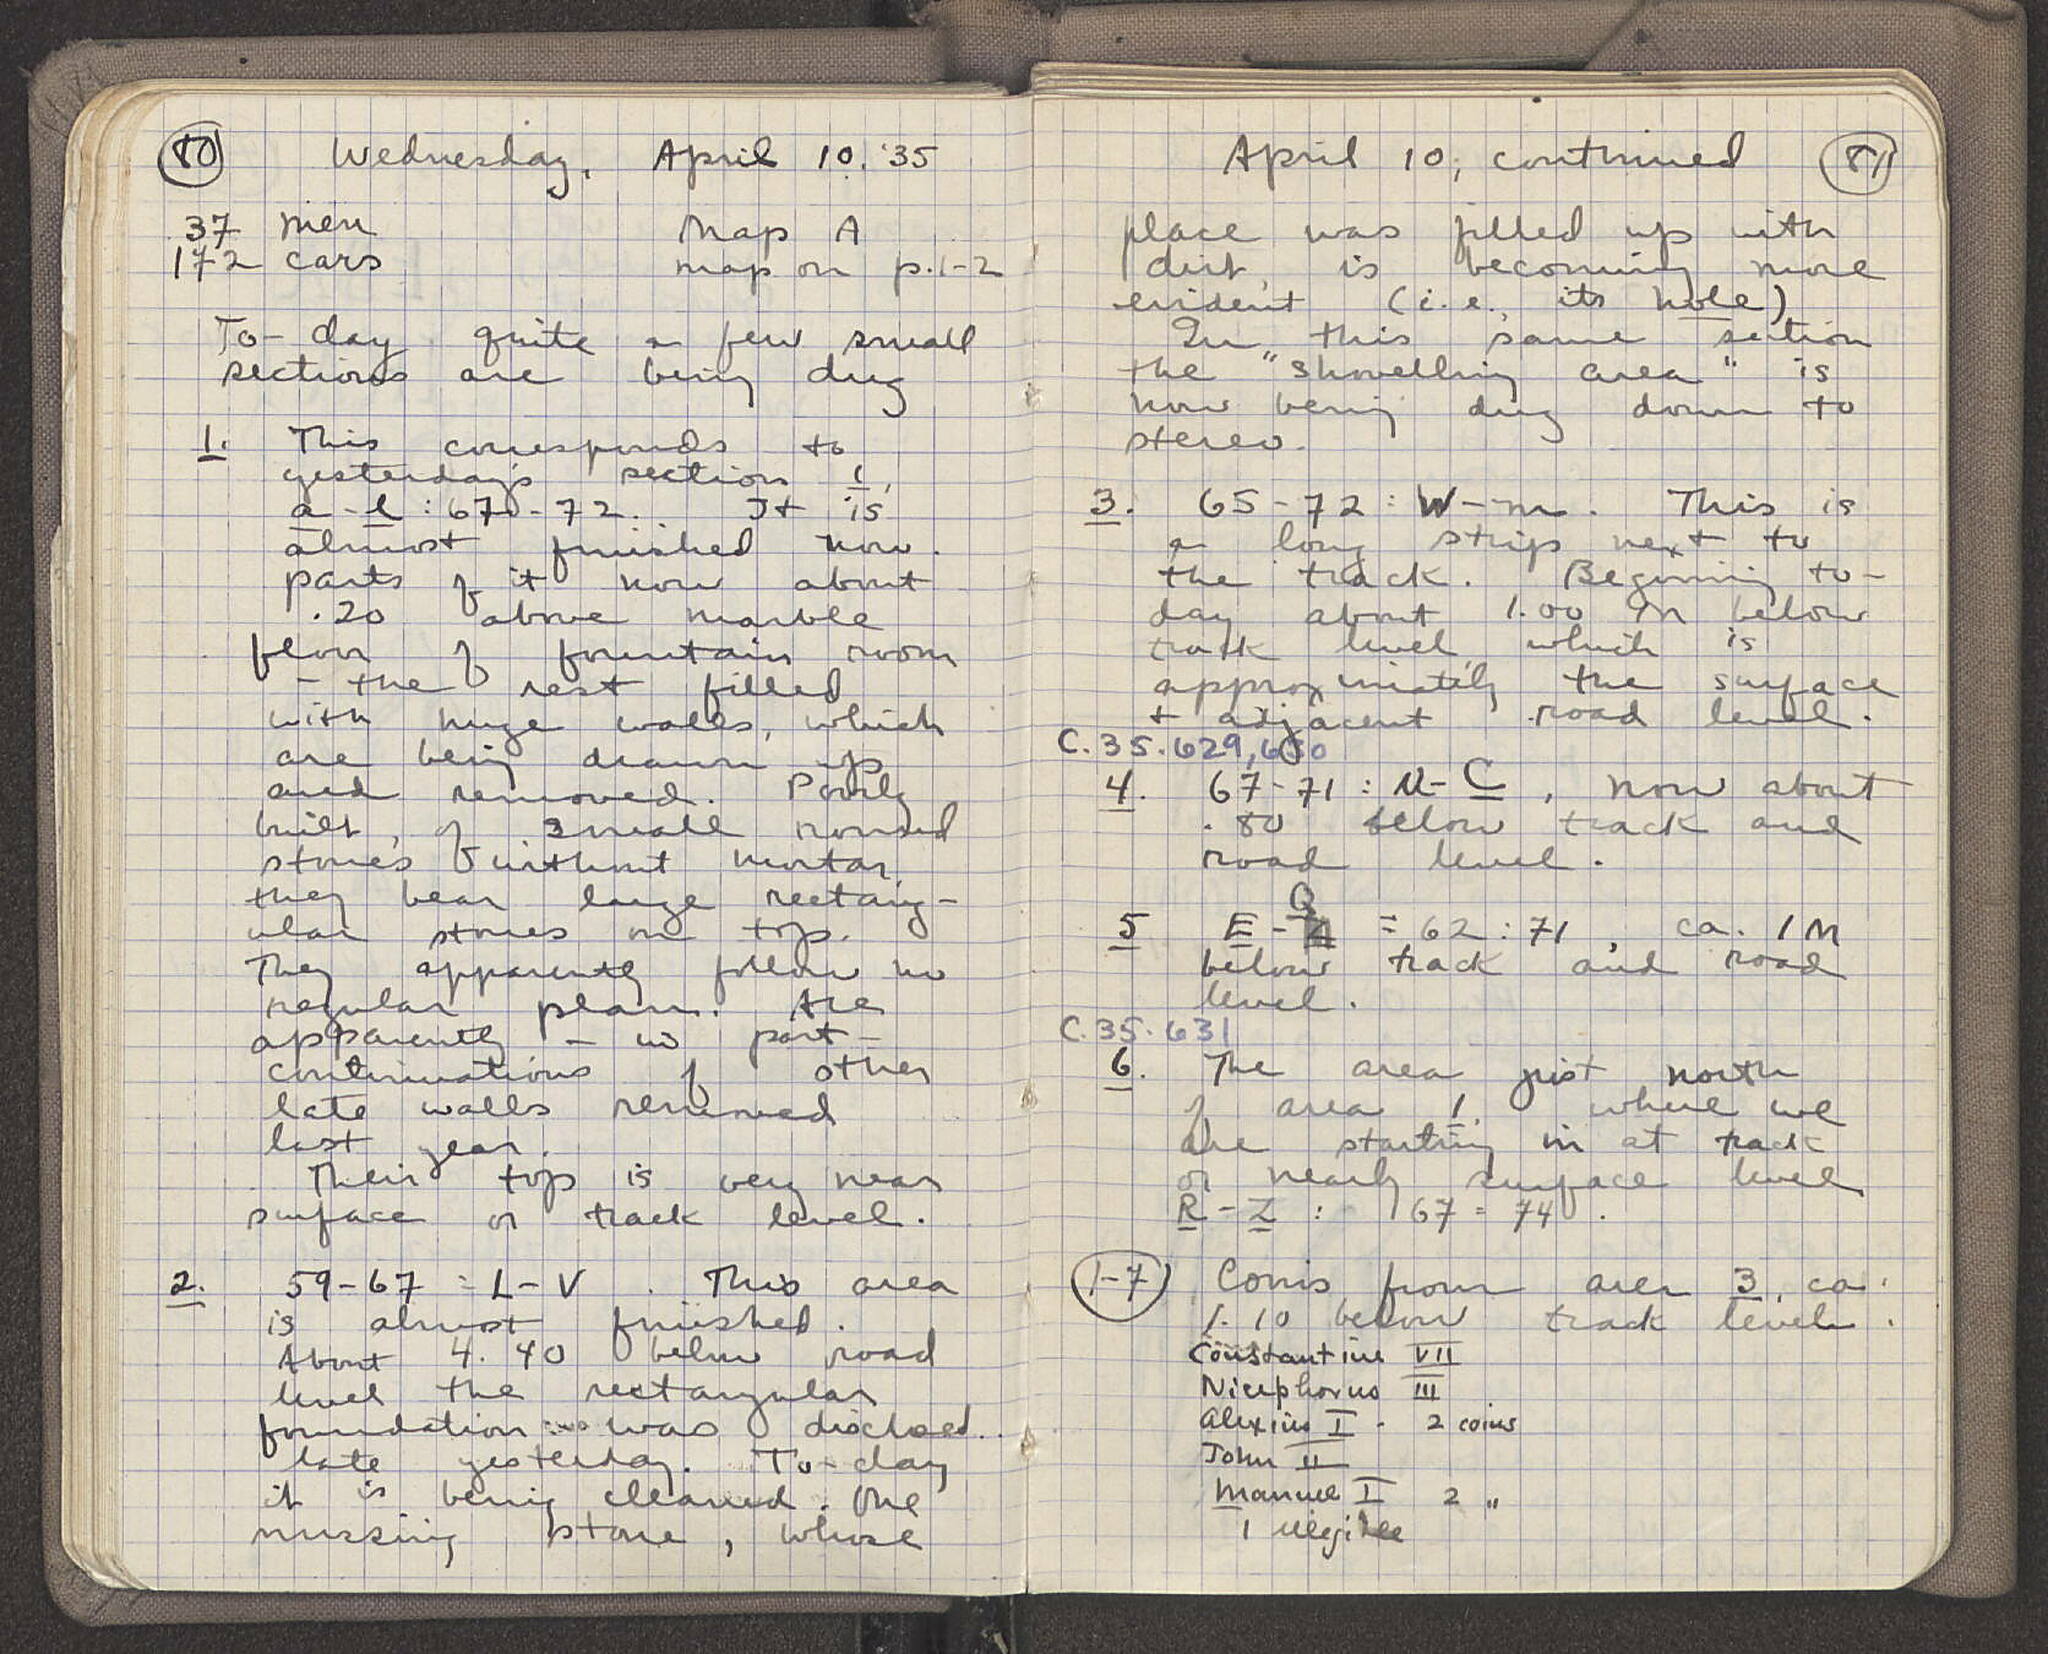 80 Wednesday, April 10. '35
37 men Map A
172 cars map on p. 1-2
To-day quite a few small
sections are being dug
1. This corresponds to
yesterday's section 1,
a-l : 67-72. It is
almost finished now.
parts of it now about
.20 above marble
floor of fountain room
- the rest filled
with huge walls, which
are being drawn up
and removed. Poorly
built, of small round
stones without mortar,
they bear large rectang-
ular stones on top.
They apparently follow no
regular plan. Are
apparently - in part -
continuations of other
late walls removed
last year.
Their top is very near
surface or track level.
2. 59-67 : L-V. This area
is almost finished.
About 4.40 below road
level the rectangular
foundation was disclosed
late yesterday. To-day
it is being cleaned. One
missing stone, whose
April 10, continued 81
place was filled up with
dirt, is becoming more
evident (i.e., its hole)
In this same section
the "shovelling area" is
now being dug down to
stereo.
3. 65-72 : W-m. This is
a long strip next to
the track. Begining to-
day about 1.00 M below
track level, which is
approximately the surface
+ adjacent road level.
C.35.629,630
4. 67-71 : U-C, now about
.80 below track and
road level.
5 E-Q = 62:71, ca. 1 M
below track and road
level.
C.35.631
6. The area just north
of area 1, where we
are starting in at track
or nearly surface level
R-Z : 67=74.
1-7 Coins from area 3, ca.
1.10 below track level.
Constantine VII
Nicephorus III
Alexius I - 2 coins
John II
Manuel I 2 "
1 illegible